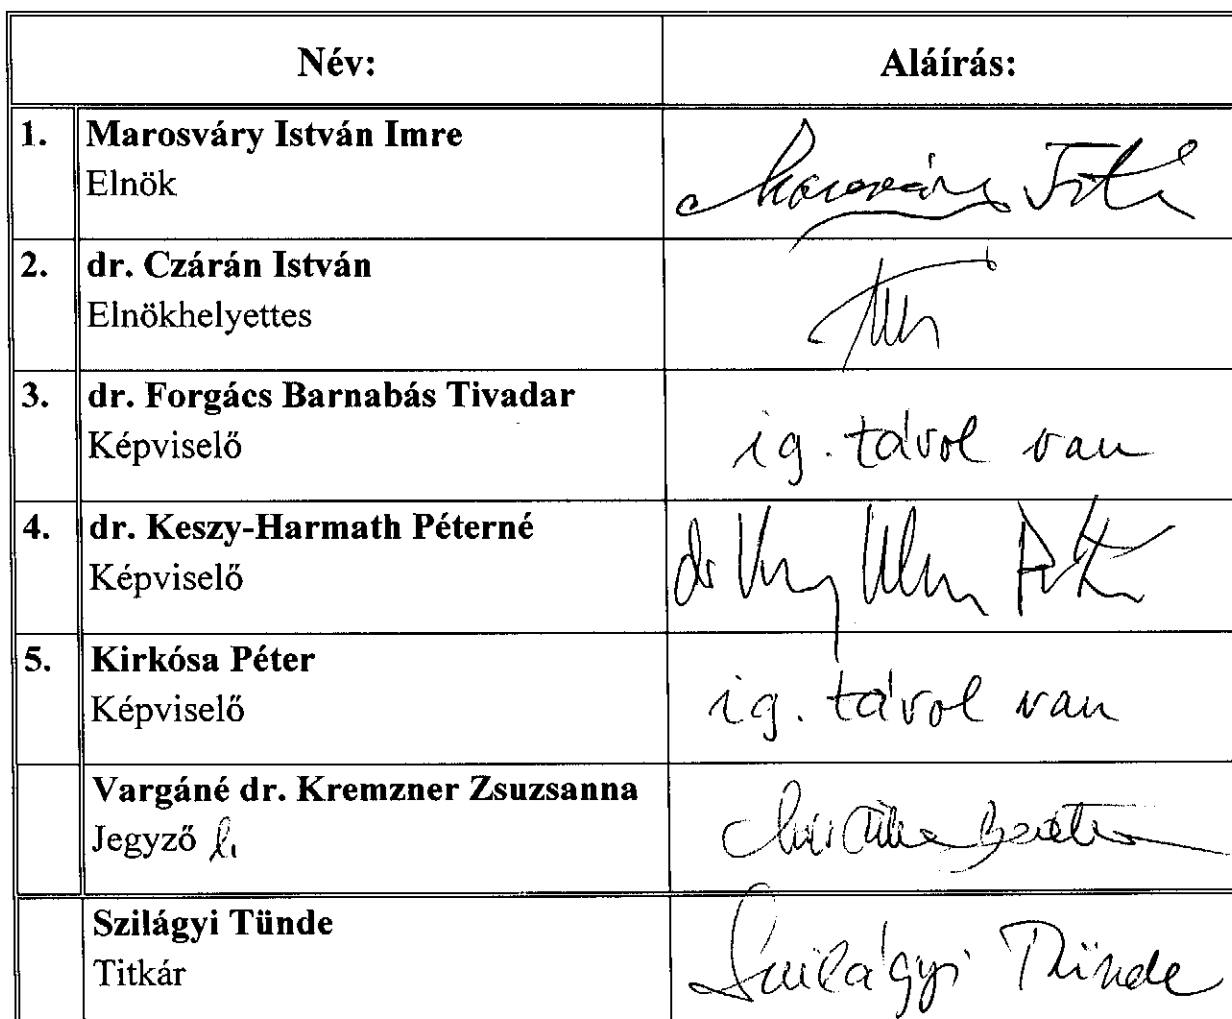 Név: Aláírás:
1. Marosváry István Imre
Elnök
2. dr. Czárán István
Elnökhelyettes
3. dr. Forgács Barnabás Tivadar
Képviselő ig. távol van
4. dr. Keszy-Harmath Péterné
Képviselő dr
5. Kirkósa Péter
Képviselő ig. távol van
Vargáné dr. Kremzner Zsuzsanna
Jegyző h.
Szilágyi Tünde
Titkár Szilágyi Tünde